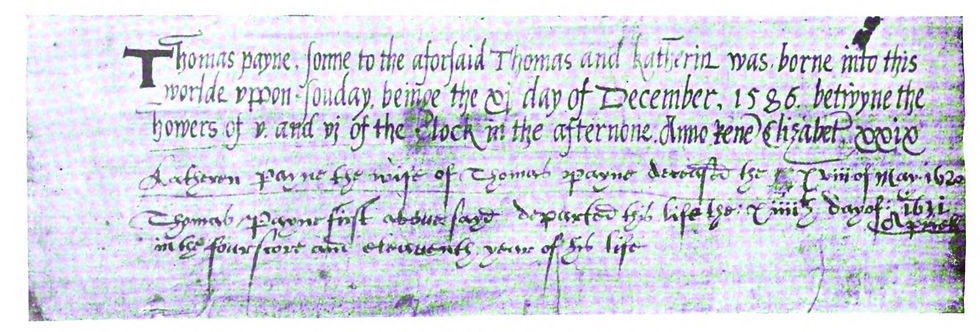 Thomas payne, sonne to the aforsaid Thomas and katherin was borne into this
worlde vppon sonday, beinge the xj day of December, 1586. betwyne the
howers of v. and vj of the Clock in the afternone. Anno Rene Elizabet xxix
Katheren Payne the wife of Thomas Payne deceased the XViii of May 1620
Thomas Payne first abovesayd departed his life the Xiiii day of 1631
Aprill
in the fourscore and eleaventh year of his life